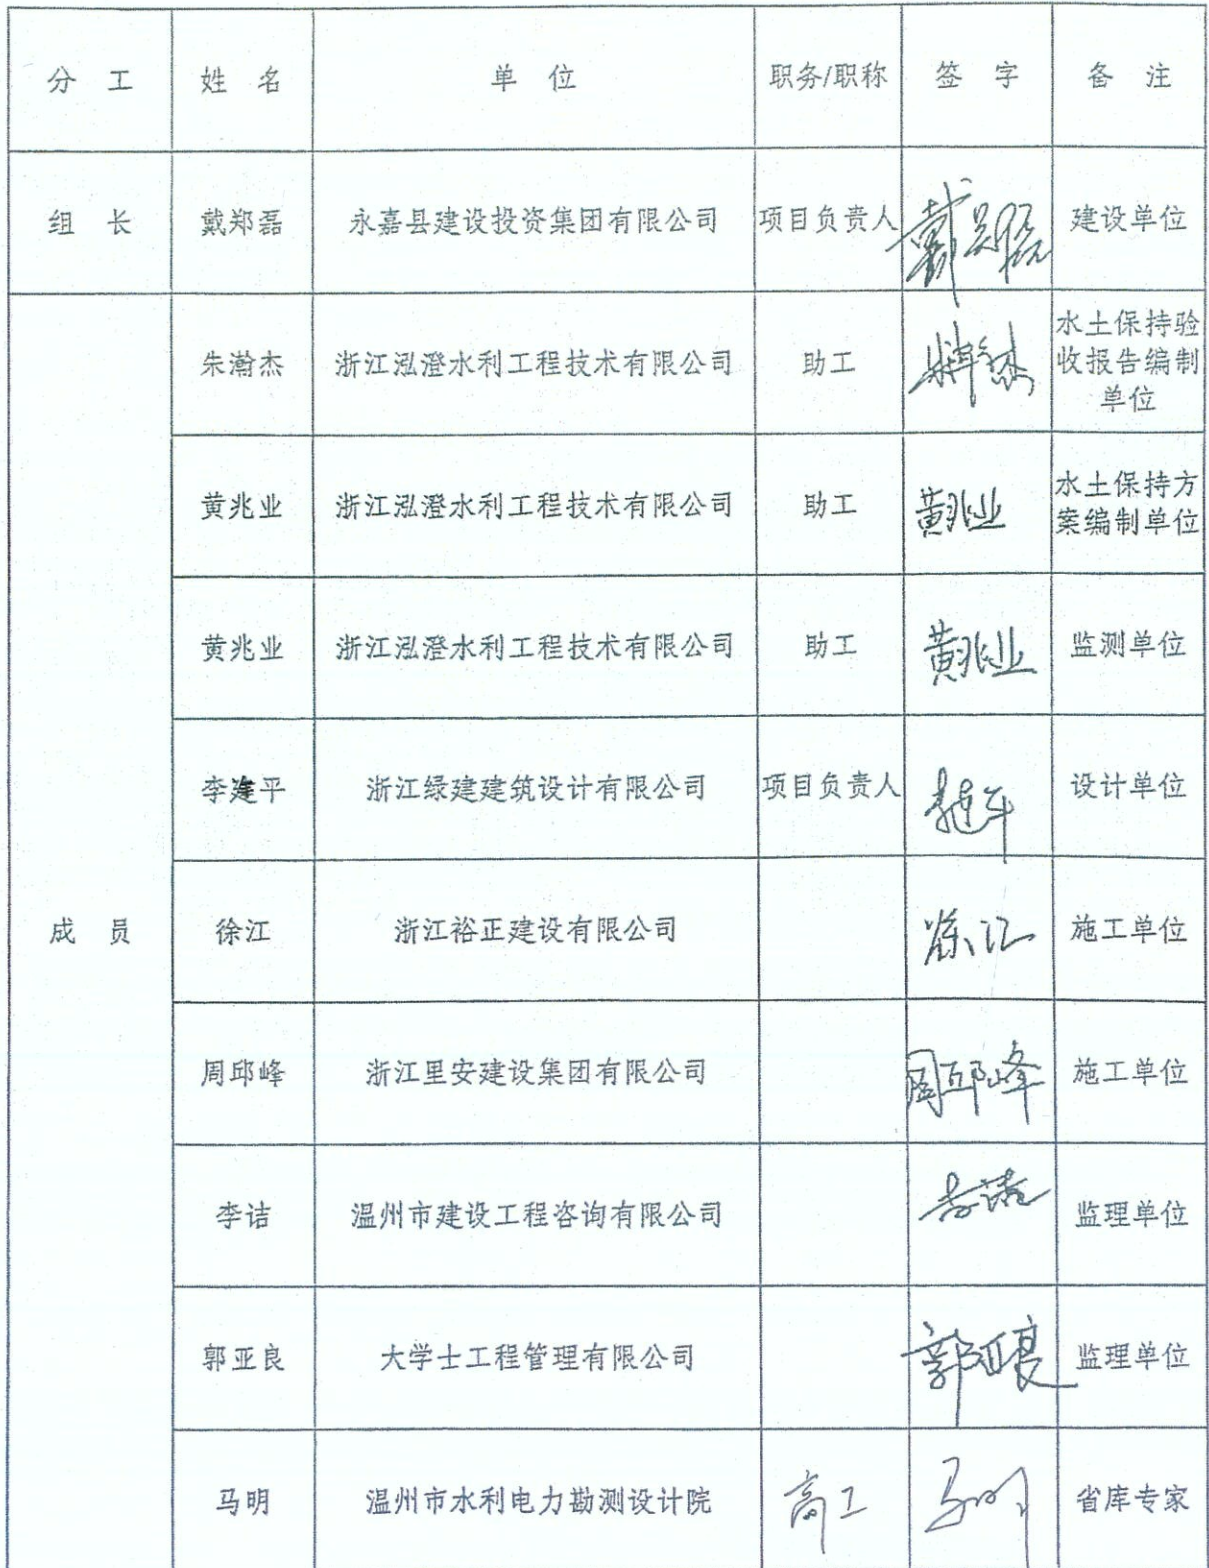 分 工 姓 名 单 位 职务/职称 签 字 备 注
组 长 戴郑磊 永嘉县建设投资集团有限公司 项目负责人 戴郑磊 建设单位
朱瀚杰 浙江泓澄水利工程技术有限公司 助工 朱瀚杰 水土保持验
收报告编制
单位
黄兆业 浙江泓澄水利工程技术有限公司 助工 黄兆业 水土保持方
案编制单位
黄兆业 浙江泓澄水利工程技术有限公司 助工 黄兆业 监测单位
李建平 浙江绿建建筑设计有限公司 项目负责人 李建平 设计单位
成 员 徐江 浙江裕正建设有限公司 徐江 施工单位
周邱峰 浙江里安建设集团有限公司 周邱峰 施工单位
李诘 温州市建设工程咨询有限公司 李诘 监理单位
郭亚良 大学士工程管理有限公司 郭亚良 监理单位
马明 温州市水利电力勘测设计院 高工 马明 省库专家